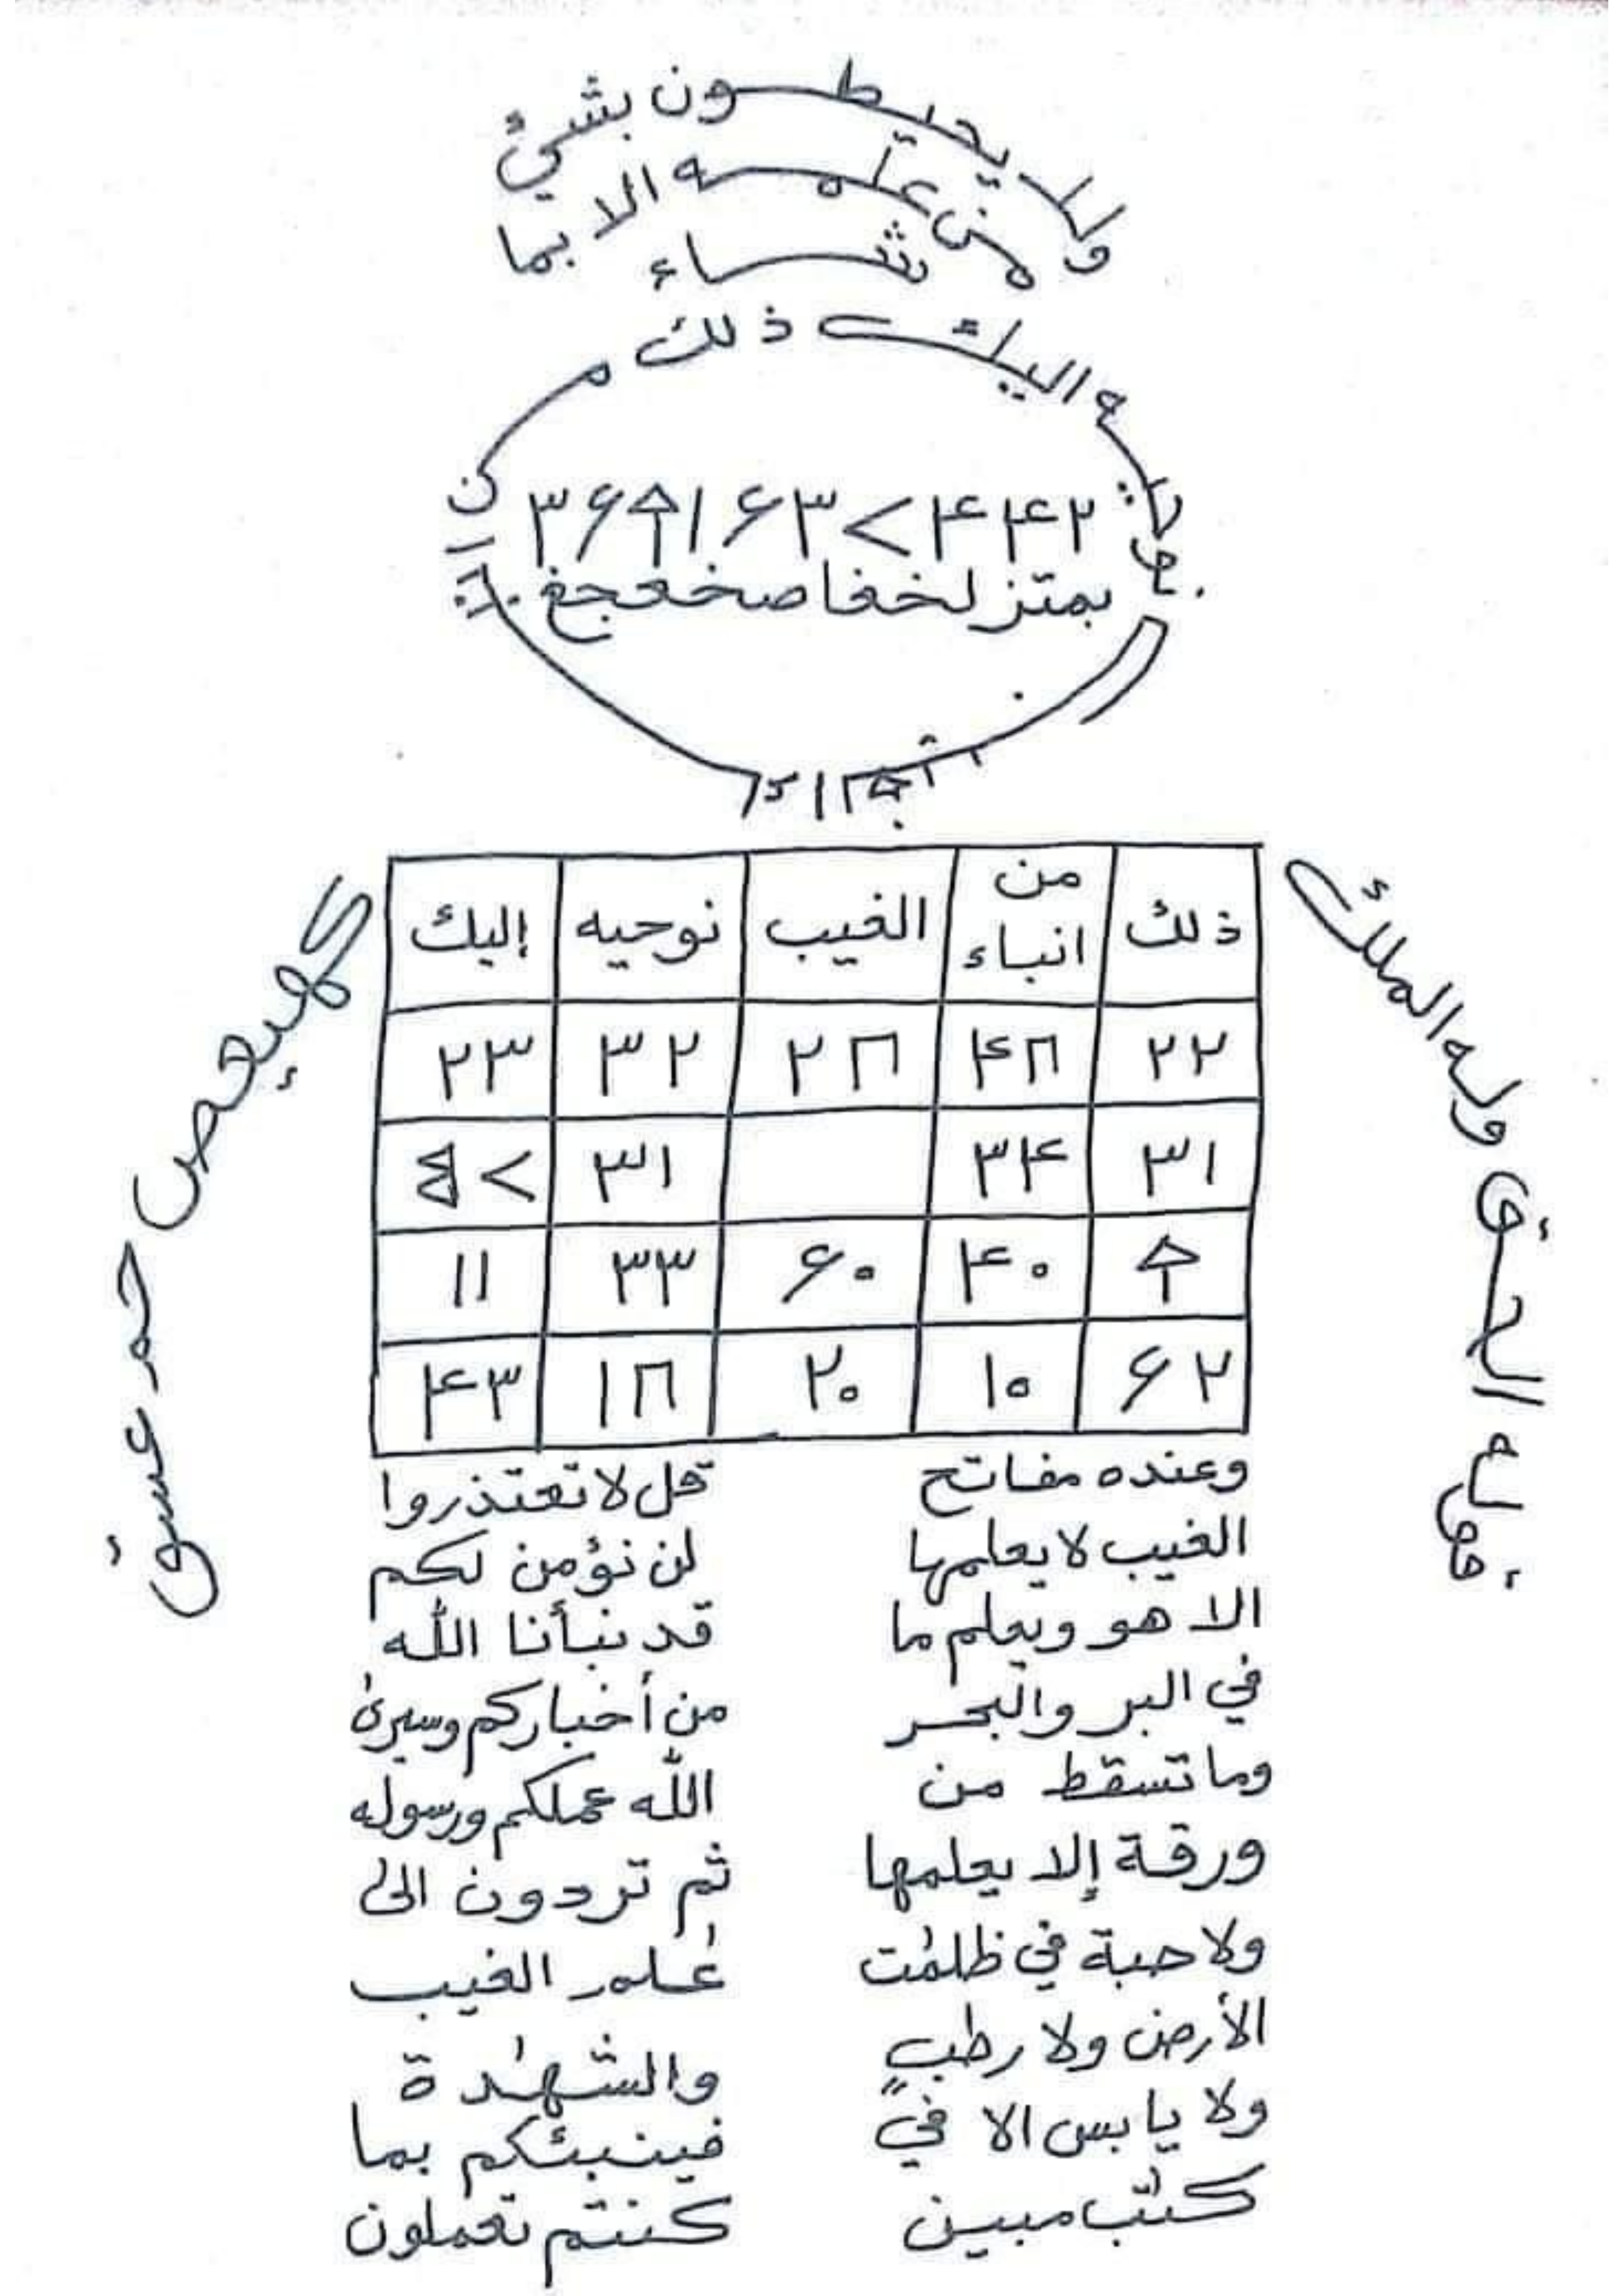 ولا يحيطون بشيئ
من علمه الا بما
شاء
ذلك من انباء الغيب نوحيه اليك
۳۶ ۱۶۳<۴۴۲
بمتز لخفا صخعجغ
ذلك | من انباء | الغيب | نوحيه | إليك
۲۲ | | | ۳۲ | ۲۳
۳۱ | ۳۴ | | ۳۱ |
| ۴۰ | ۶۰ | ۳۳ | ۱۱
۶۲ | ۱۰ | ۲۰ | | ۴۳
قوله الحق وله الملك
كهيعص حمعسق
وعنده مفاتح
الغيب لا يعلمها
الا هو ويعلم ما
في البر والبحر
وما تسقط من
ورقة إلا يعلمها
ولا حبة في ظلمٰت
الأرض ولا رطب
ولا يابس الا في
كتٰب مبين
قل لا تعتذروا
لن نؤمن لكم
قد نبأنا الله
من أخباركم وسيرىٰ
الله عملكم ورسوله
ثم تردون الىٰ
عٰلم الغيب
والشهٰدة
فينبئكم بما
كنتم تعملون